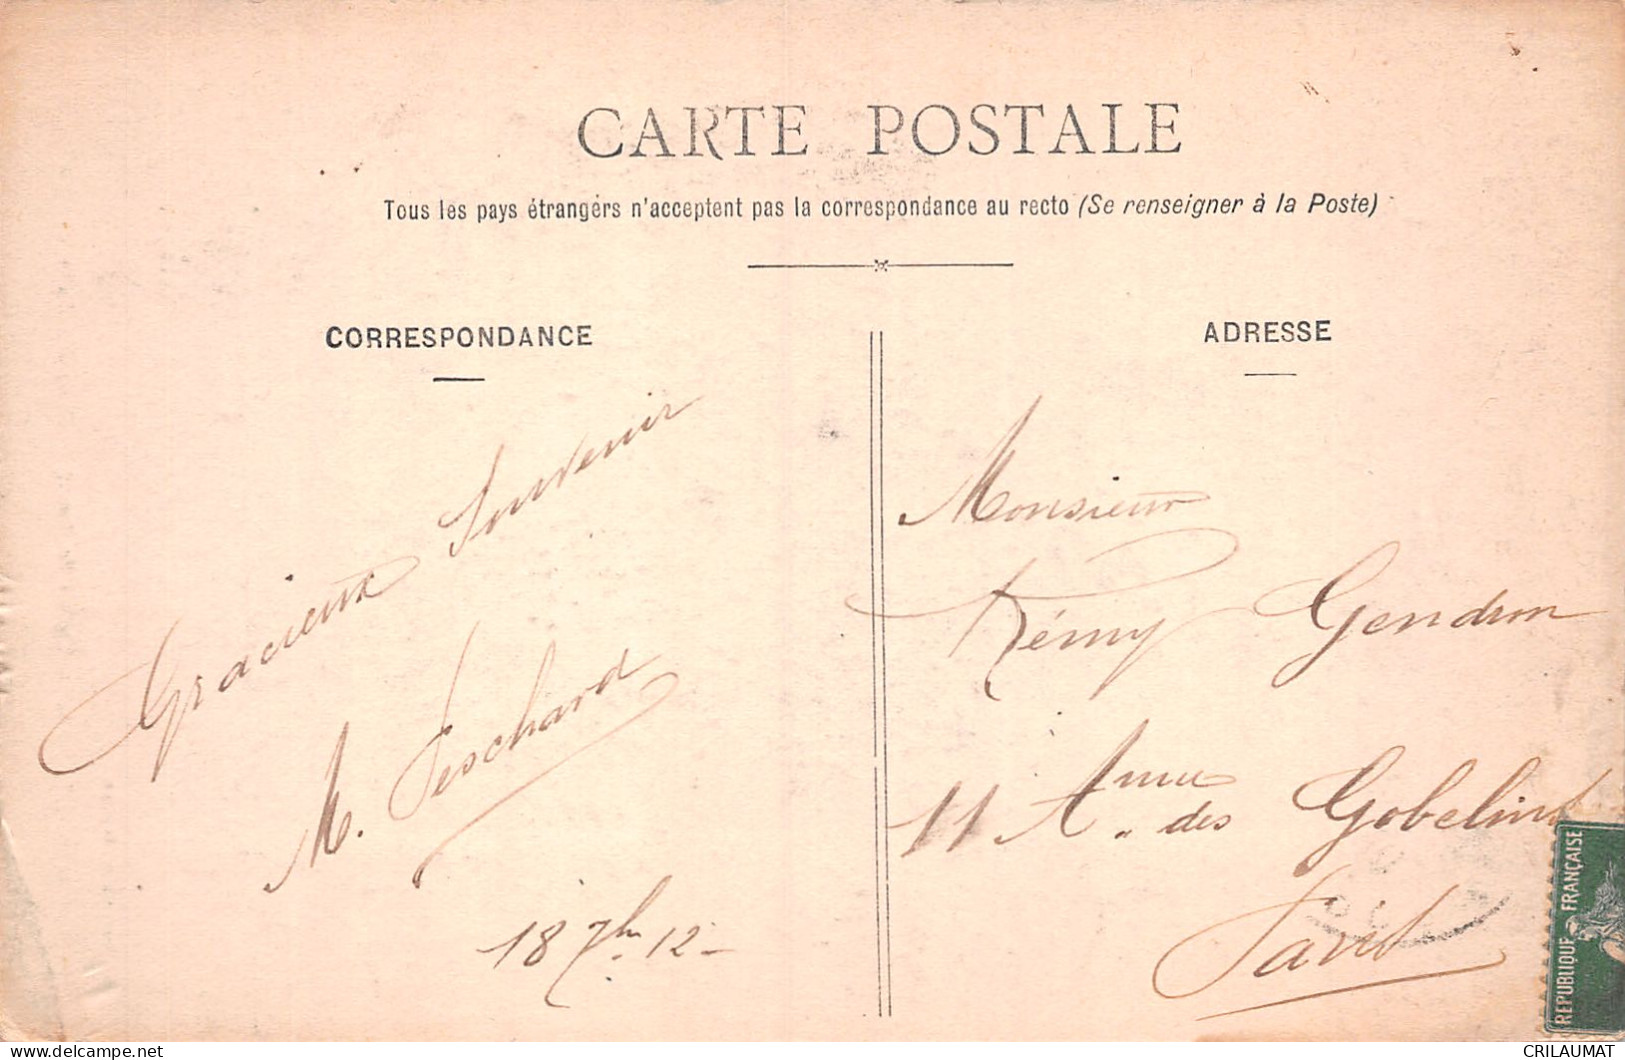 CARTE POSTALE
Tous les pays étrangers n'acceptent pas la correspondance au recto (Se renseigner à la Poste)
CORRESPONDANCE
Gracieux Souvenir
M. Peschard
18 7bre 12
ADRESSE
Monsieur
Rémy Gendron
11 Anue des Gobelins
Paris
REPUBLIQUE FRANÇAISE
delcampe.net
CRILAUMAT